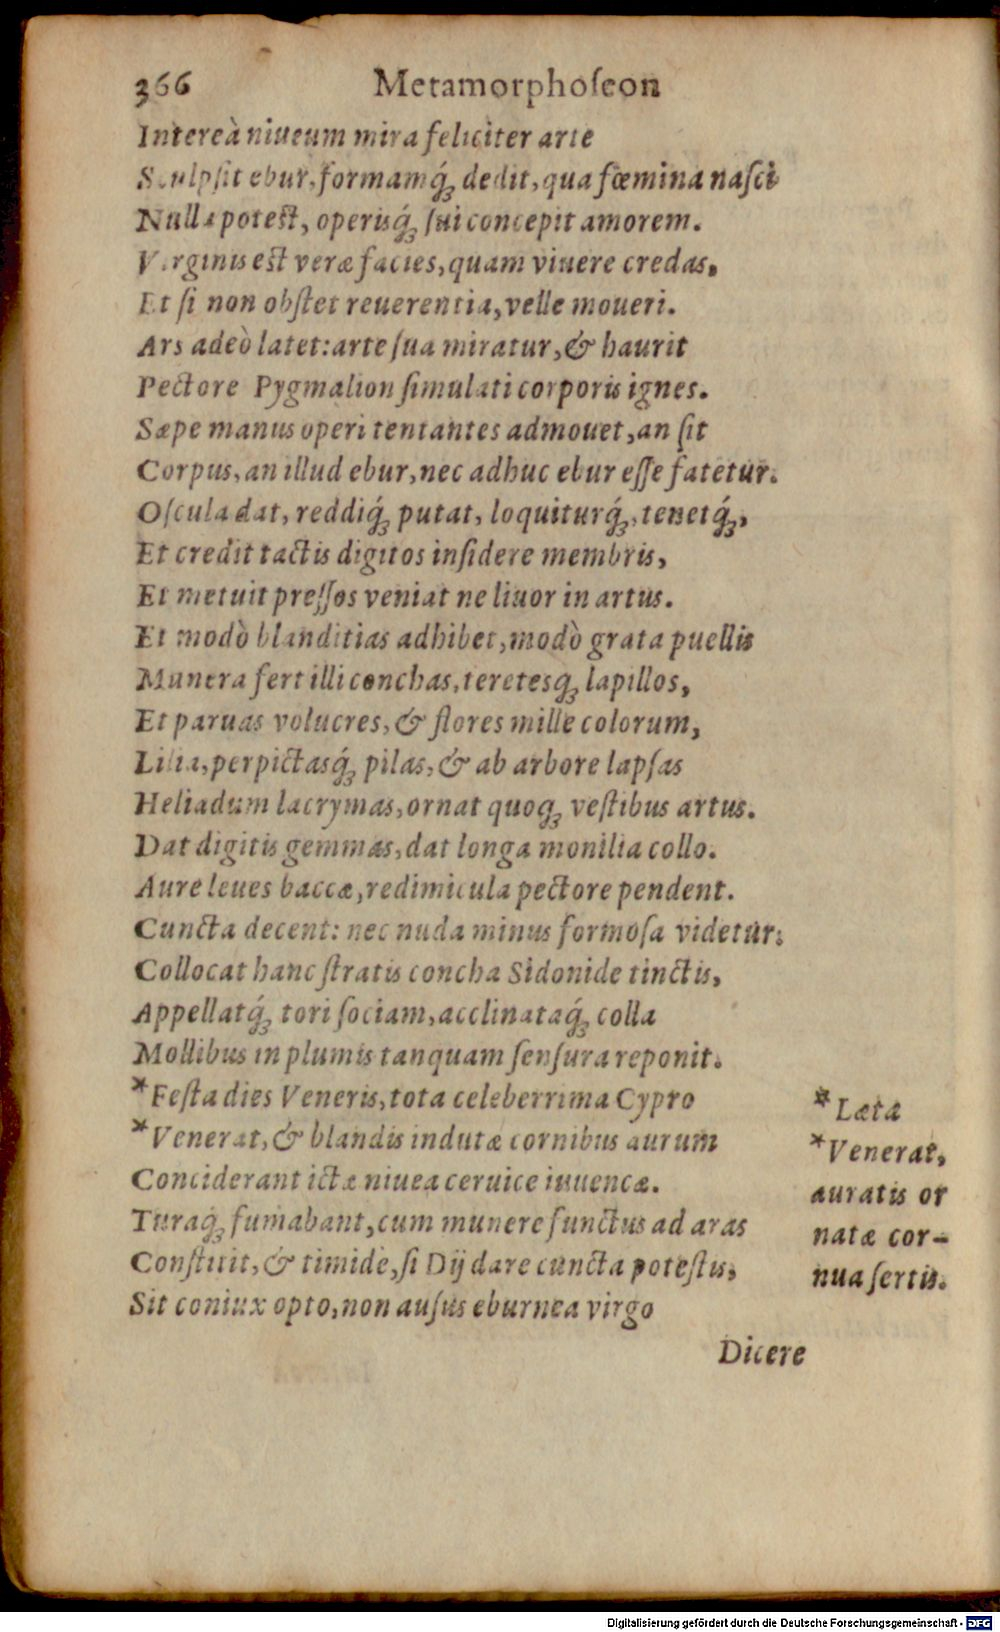 366 Metamorphoſeon
Intereà niueum mira feliciter arte
Sculpſit ebur, formamq́; dedit, qua fœmina naſci
Nulla potest, operisq́; ſui concepit amorem.
Virginis est veræ facies, quam viuere credas,
Et ſi non obſtet reuerentia, velle moueri.
Ars adeò latet: arte ſua miratur, & haurit
Pectore Pygmalion ſimulati corporis ignes.
Sæpe manus operi tentantes admouet, an ſit
Corpus, an illud ebur, nec adhuc ebur eſſe fatetur.
Oſcula dat, reddiq́; putat, loquiturq́;, tenetq́;,
Et credit tactis digitos inſidere membris,
Et metuit preſſos veniat ne liuor in artus.
Et modò blanditias adhibet, modò grata puellis
Munera fert illi conchas, teretesq; lapillos,
Et paruas volucres, & flores mille colorum,
Lilia, perpictasq́; pilas, & ab arbore lapſas
Heliadum lacrymas, ornat quoq; veſtibus artus.
Dat digitis gemmas, dat longa monilia collo.
Aure leues baccæ, redimicula pectore pendent.
Cuncta decent: nec nuda minus formoſa videtur.
Collocat hanc ſtratis concha Sidonide tinctis,
Appellatq́; tori ſociam, acclinataq́; colla
Mollibus in plumis tanquam ſenſura reponit.
*Feſta dies Veneris, tota celeberrima Cypro
*Venerat, & blandis indutæ cornibus aurum
Conciderant ictæ niuea ceruice iuuencæ.
Turaq́; fumabant, cum munere functus ad aras
Conſtitit, & timidè, ſi Dij dare cuncta poteſtis,
Sit coniux opto, non auſus eburnea virgo
Dicere
*Læta
*Venerat,
auratis or
natæ cor-
nua ſertis.
Digitalisierung gefördert durch die Deutsche Forschungsgemeinschaft - DFG